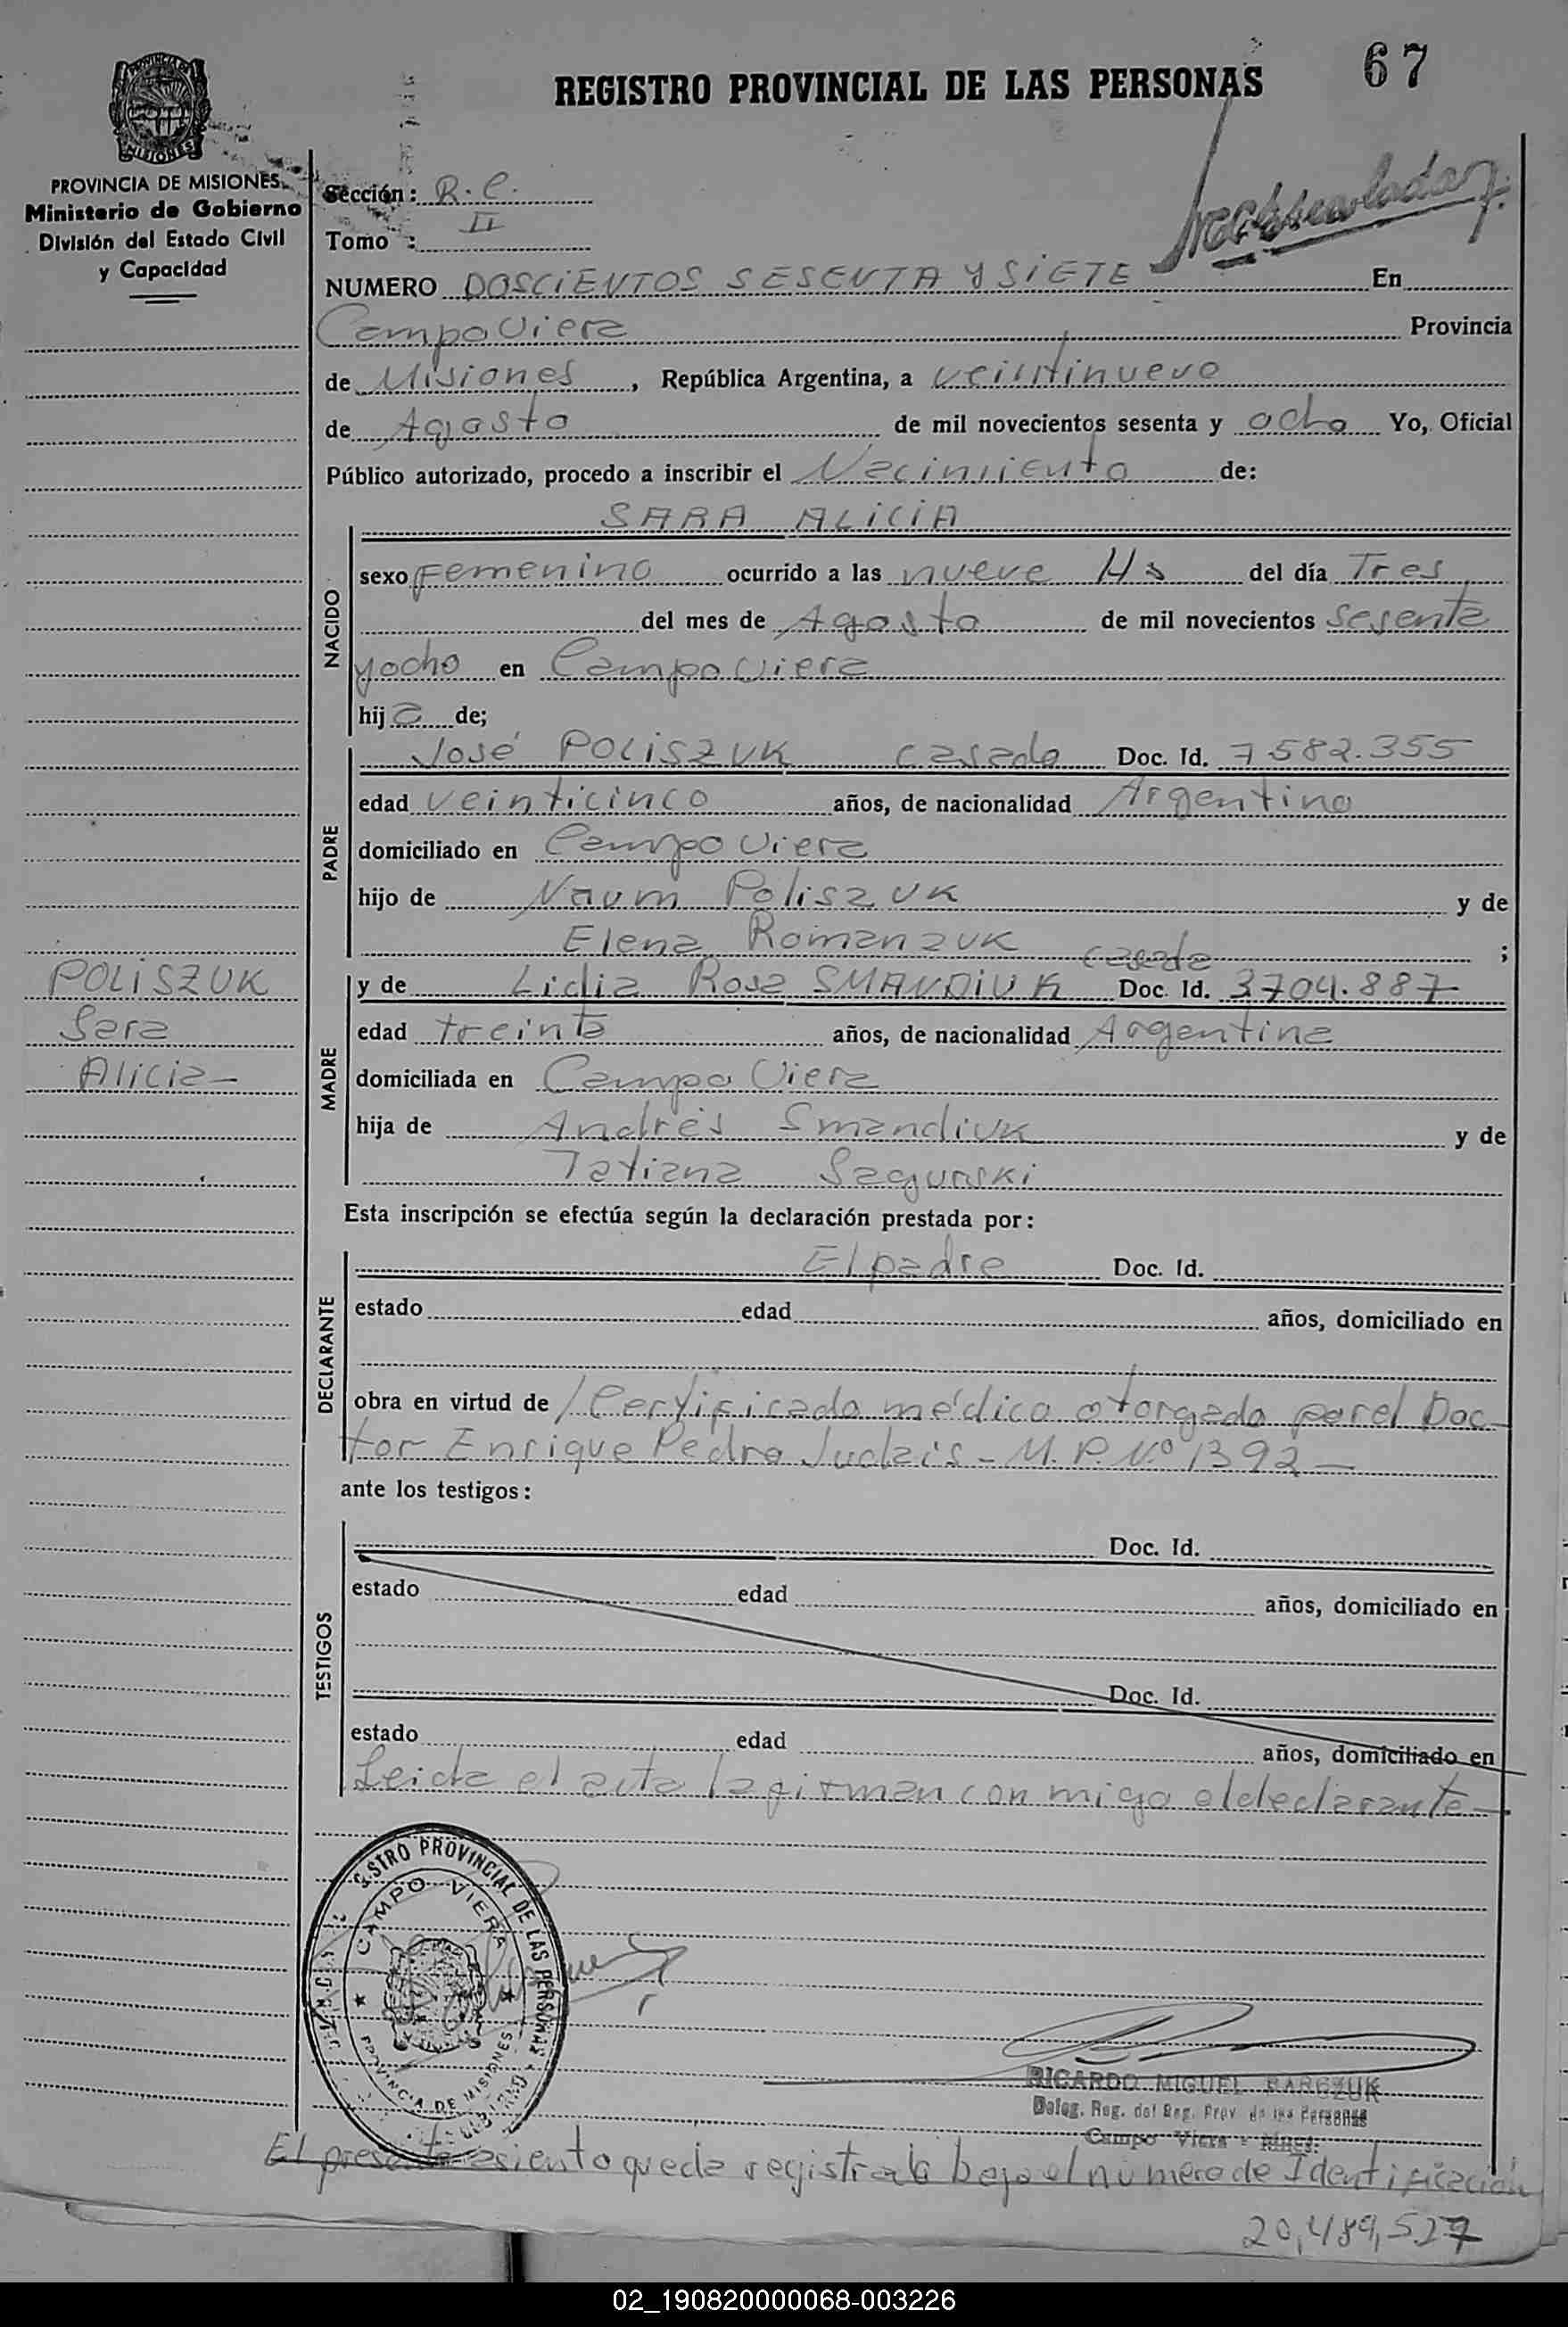 67
REGISTRO PROVINCIAL DE LAS PERSONAS
MISIONES
PROVINCIA DE MISIONES
Ministerio de Gobierno
División del Estado Civil
y Capacidad
Sección: R.C.
Tomo : II
NUMERO DOSCIENTOS SESENTA Y SIETE En
Campo Viera Provincia
de Misiones, República Argentina, a veintinueve
de Agosto de mil novecientos sesenta y ocho Yo, Oficial
Público autorizado, procedo a inscribir el Nacimiento de:
SARA ALICIA
NACIDO
sexo Femenino ocurrido a las nueve Hs del día Tres
del mes de Agosto de mil novecientos sesenta
y ocho en Campo Viera
hija de;
PADRE
José POLISZUK casado Doc. Id. 7.582.355
edad veinticinco años, de nacionalidad Argentino
domiciliado en Campo Viera
hijo de Naum Poliszuk y de
Elena Romanzuk ;
POLISZUK
Sara
Alicia-
MADRE
casada
y de Lidia Rosa SMANDIUK Doc. Id. 3704.887
edad treinta años, de nacionalidad Argentina
domiciliada en Campo Viera
hija de Andrés Smandiuk y de
Tatiana Sagurski
Esta inscripción se efectúa según la declaración prestada por:
DECLARANTE
El padre Doc. Id.
estado edad años, domiciliado en
obra en virtud de / Certificado médico otorgado por el Doc-
tor Enrique Pedro Judais - M.P. Nº 1392 -
ante los testigos:
TESTIGOS
Doc. Id.
estado edad años, domiciliado en
Doc. Id.
estado edad años, domiciliado en
Leida el acta la firman con migo el declarante-
REGISTRO PROVINCIAL DE LAS PERSONAS
CAMPO VIERA
PROVINCIA DE MISIONES
RICARDO MIGUEL BARCZUK
Deleg. Reg. del Reg. Prov. de las Personas
Campo Viera - Mnes.
El presente asiento queda registrado bajo el número de Identificación
20,489,527
02_190820000068-003226